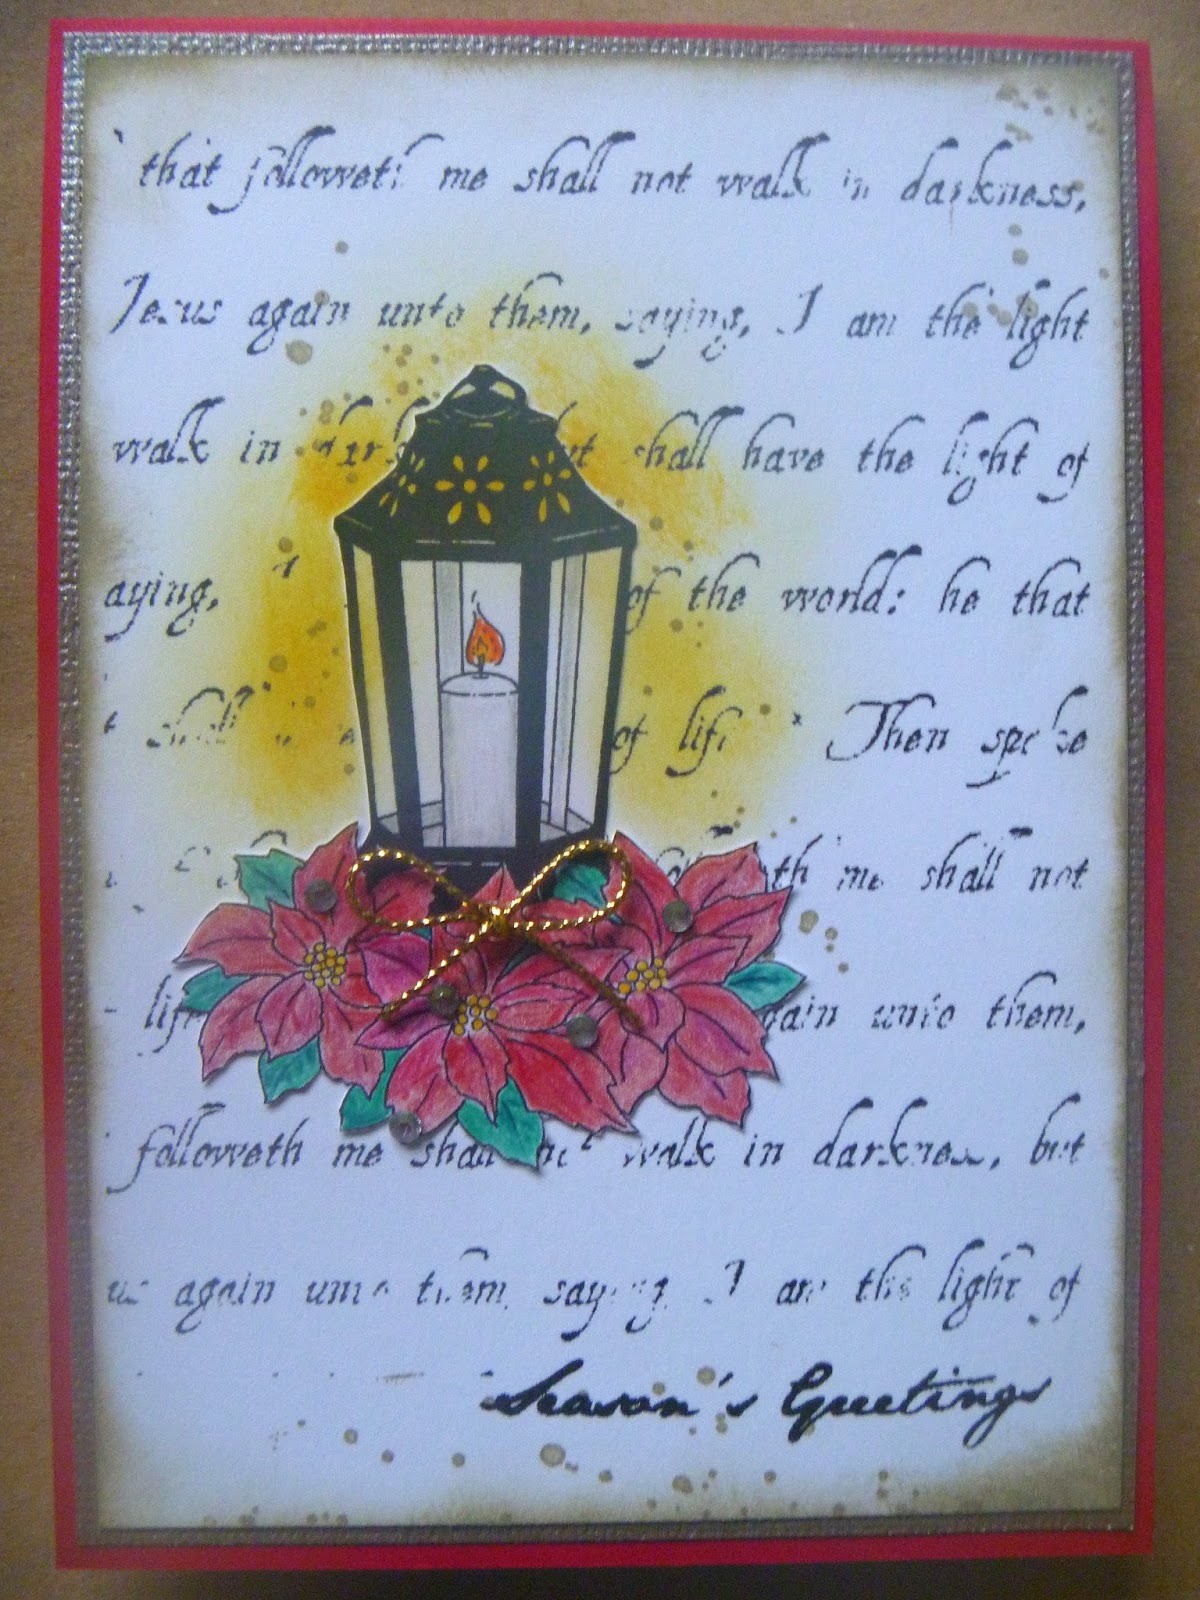 that followeth me shall not walk in darkness,
Jesus again unto them, saying, I am the light
walk in shall have the light of
aying, of the world: he that
of life Then spoke
me shall not
again unto them,
followeth me shall not walk in darkness, but
again unto them saying, I am the light of
Season's Greetings